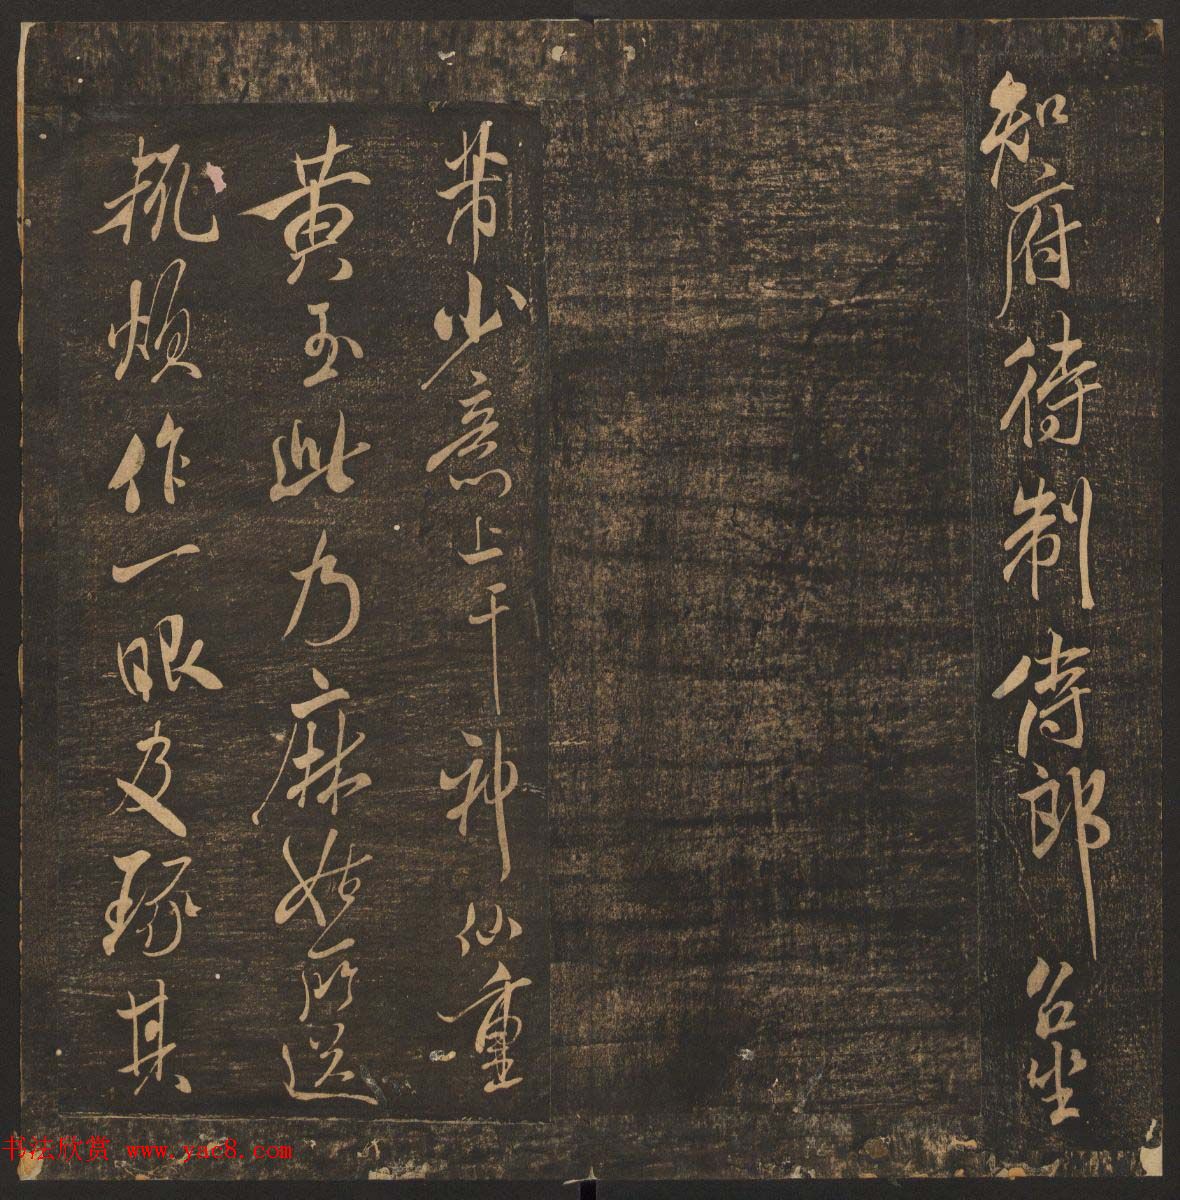 知府待制侍郎台坐
芾少意上干神仙重
黄玉此乃麻姑所送
輒煩作一眼及琢其
书法欣赏 www.yac8.com